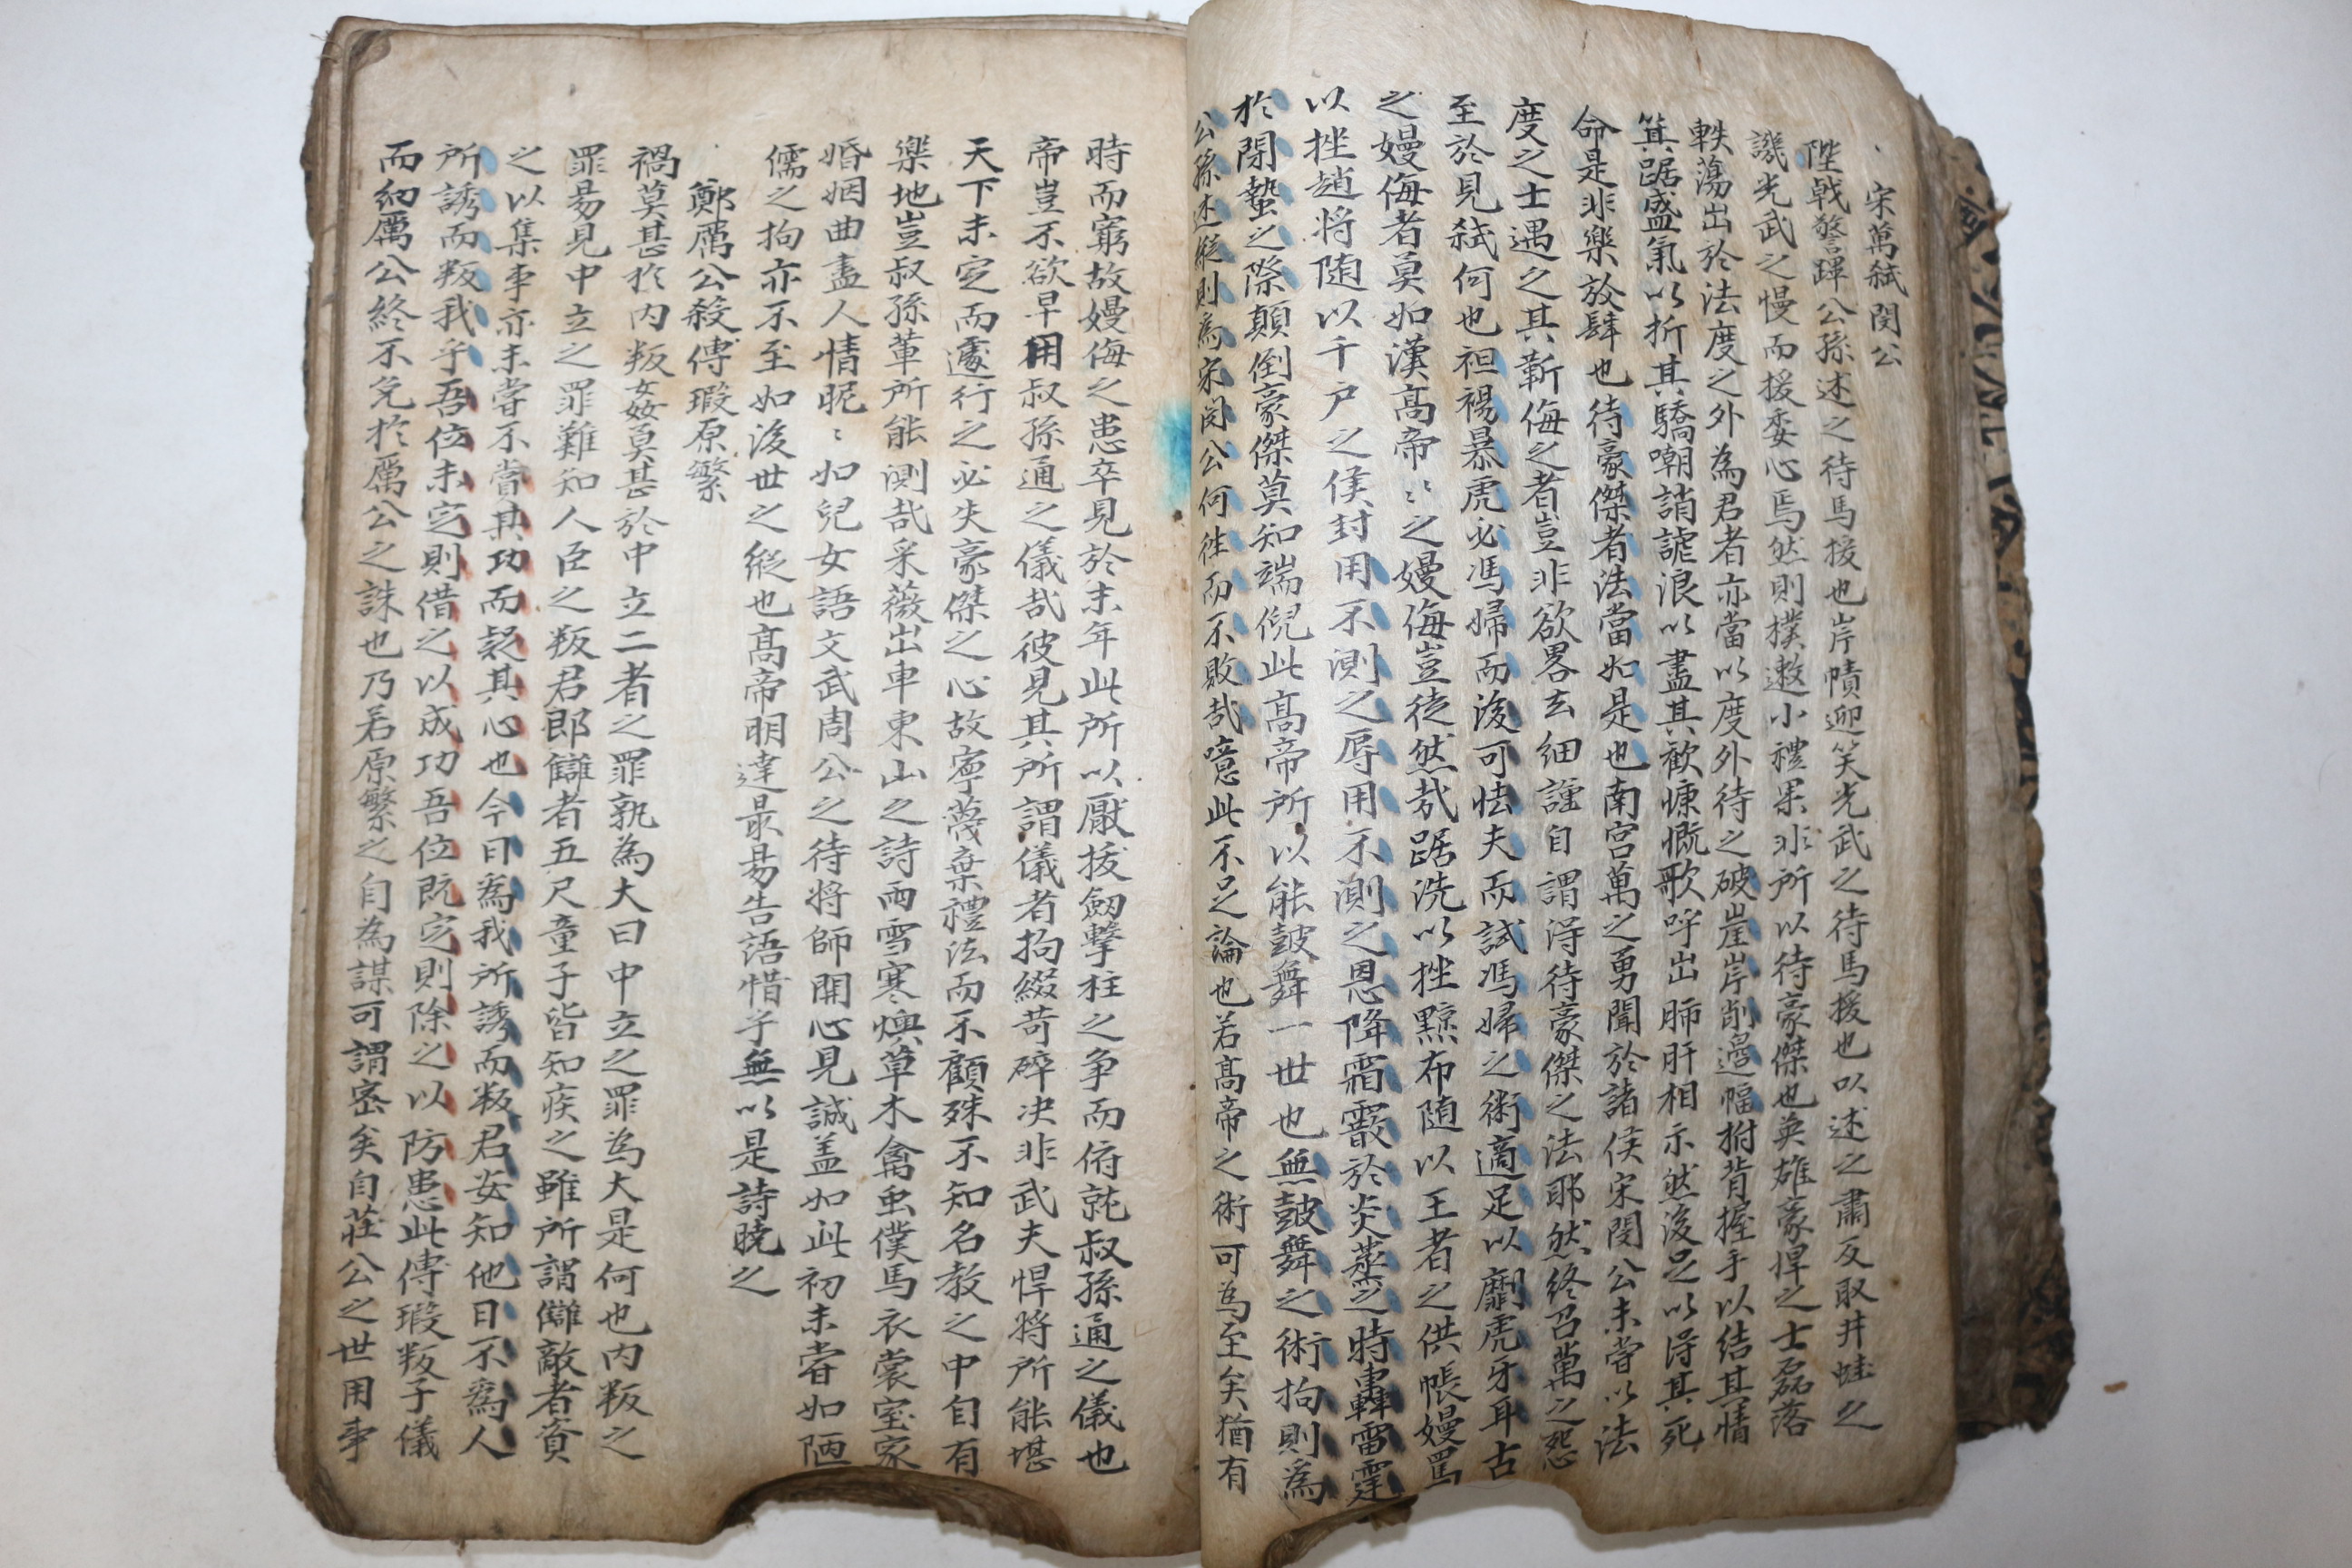 宋萬弑閔公
陛戟警蹕公孫述之待馬援也岸幘迎笑光武之待馬援也以述之肅反取井蛙之
譏光武之慢而援委心焉然則撲遬小禮果非所以待豪傑也英雄豪悍之士磊落
軼蕩出於法度之外為君者亦當以度外待之破崖岸削邉幅拊背握手以結其情
箕踞盛氣以折其驕嘲誚謔浪以盡其歡慷慨歌呼出肺肝相示然後足以淂其死
命是非樂放肆也待豪傑者法當如是也南宮萬之勇聞於諸侯宋閔公未甞以法
度之士遇之其靳侮之者豈非欲畧去細謹自謂淂待豪傑之法耶然終召萬之怨
至於見弑何也袒裼暴虎必馮婦而後可怯夫而試馮婦之術適足以劘虎牙耳古
之嫚侮者莫如漢髙帝〻之嫚侮豈徒然㢤踞洗以挫黥布隨以王者之供帳嫚罵
以挫趙将随以千户之侯封用不測之辱用不測之恩降霜霰於炎蒸之時轟雷霆
於閉蟄之際顛倒豪傑莫知端倪此髙帝所以能鼓舞一世也無鼓舞之術拘則為
公孫述縱則爲宋閔公何徃而不敗哉噫此不足論也若髙帝之術可為至矣猶有
時而窮故嫚侮之患卒見於末年此所以厭拔劒擊柱之争而俯就叔孫通之儀也
帝豈不欲早用叔孫通之儀哉彼見其所謂儀者拘綴苛碎决非武夫悍将所能堪
天下未㝎而遽行之必失豪傑之心故寧蔑棄禮法而不顧殊不知名教之中自有
樂地豈叔孫軰所能測哉采薇出車東山之詩雨雪寒燠草木禽虫僕馬衣裳室家
婚姻曲盡人情昵〻如兒女語文武周公之待将師開心見誠盖如此初未甞如陋
儒之拘亦不至如後世之縱也髙帝明達最易告語惜乎無以是詩曉之
鄭厲公殺傅瑕原繁
禍莫甚於内叛姦莫甚於中立二者之罪孰為大曰中立之罪為大是何也内叛之
罪易見中立之罪難知人臣之叛君郎讎者五尺童子皆知疾之雖所謂讎敵者資
之以集事亦未甞不賞其功而疑其心也今日爲我所誘而叛君安知他日不爲人
所誘而叛我乎吾位未㝎則借之以成功吾位既㝎則除之以防患此傅瑕叛子儀
而納厲公終不免於厲公之誅也乃若原繁之自為謀可謂密矣自莊公之世用事